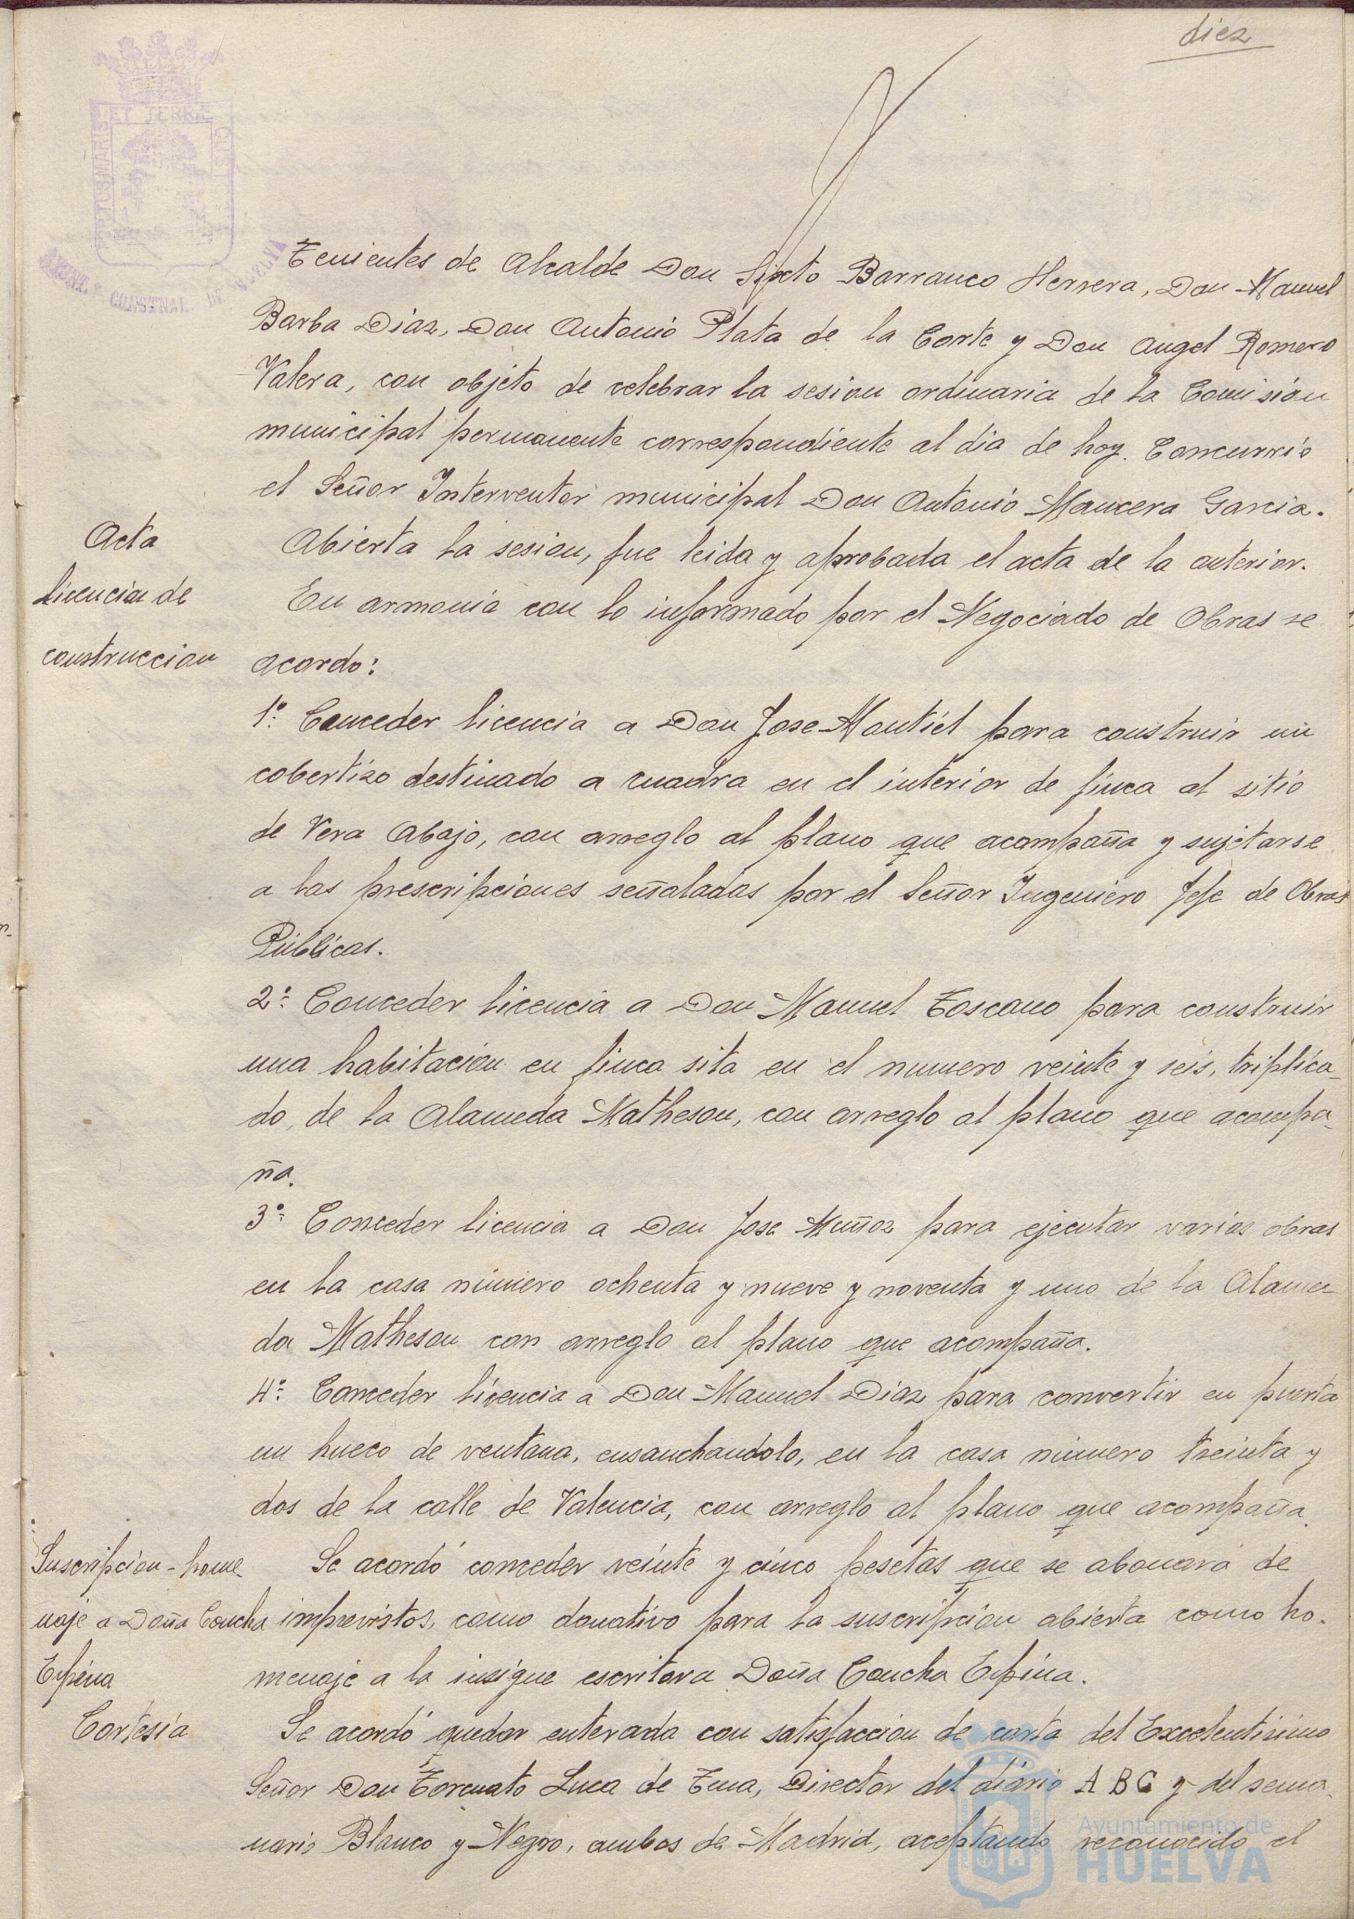 diez
PORTUS MARIS ET TERRÆ CUSTODIA
AYUNT. CONSTNAL. DE HUELVA
Tenientes de Alcalde Don Sixto Barranco Herrera, Don Manuel
Barba Diaz, Don Antonio Plata de la Corte y Don Angel Romero
Valera, con objeto de celebrar la sesion ordinaria de la Comisión
municipal permanente correspondiente al dia de hoy. Concurrió
el Señor Interventor municipal Don Antonio Mancera Garcia.
Acta
Abierta la sesion, fue leida y aprobada el acta de la anterior.
Licencias de
construccion
En armonia con lo informado por el Negociado de Obras se
acordo:
1º: Conceder licencia a Don Jose Montiel para construir un
cobertizo destinado a cuadra en el interior de finca al sitio
de Vera Abajo, con arreglo al plano que acompaña y sujetarse
a las prescripciones señaladas por el Señor Ingeniero Jefe de Obras
Públicas.
2º: Conceder licencia a Don Manuel Toscano para construir
una habitación en finca sita en el numero veinte y seis, triplica-
do, de la Alameda Matheson, con arreglo al plano que acompa-
ña.
3º: Conceder licencia a Don Jose Muñoz para ejecutar varias obras
en la casa número ochenta y nueve y noventa y uno de la Alame-
da Matheson con arreglo al plano que acompaña.
4º: Conceder licencia a Don Manuel Diaz para convertir en puerta
un hueco de ventana, ensanchandolo, en la casa número treinta y
dos de la calle de Valencia, con arreglo al plano que acompaña.
Suscripcion-home
naje a Doña Concha
Espina
Se acordó conceder veinte y cinco pesetas que se abonará de
imprevistos, como donativo para la suscripcion abierta como ho-
menaje a la insigne escritora Doña Concha Espina.
Cortesía
Se acordó quedar enterada con satisfaccion de carta del Excelentísimo
Señor Don Torcuato Luca de Tena, Director del diario A B C y del sema-
nario Blanco y Negro, ambos de Madrid, aceptando reconocido el
Ayuntamiento de
HUELVA